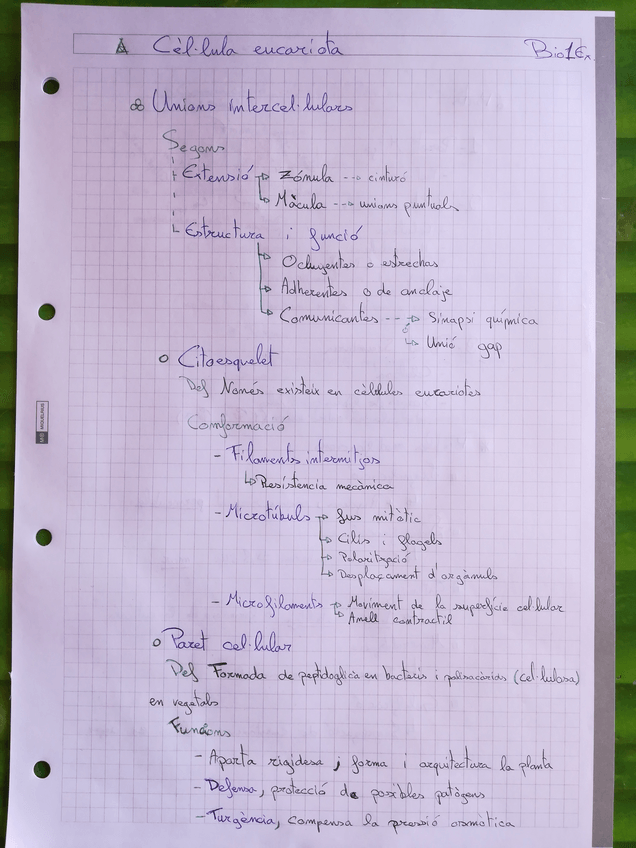 Cèl·lula eucariota Bio1Ex.
Unions intercel·lulars
Segons
Extensió Zónula cinturó
Màcula unions puntuals
Estructura i funció
Ocluyentes o estrechas
Adherentes o de anclaje
Comunicantes Sinapsi química
Unió gap
Citoesquelet
Def Només existeix en cèl·lules eucariotes
Conformació
- Filaments intermitjos
Resistencia mecànica
- Microtúbuls fus mitòtic
Cilis i flagels
Polarització
Desplaçament d'orgànuls
- Microfilaments Moviment de la superfície cel·lular
Anell contractil
Paret cel·lular
Def Formada de peptidoglicà en bacteris i polisacàrids (cel·lulosa)
en vegetals
Funcions
- Aporta rigidesa, forma i arquitectura la planta
- Defensa, protecció de posibles patògens
- Turgència, compensa la pressió osmòtica
MIQUELRIUS